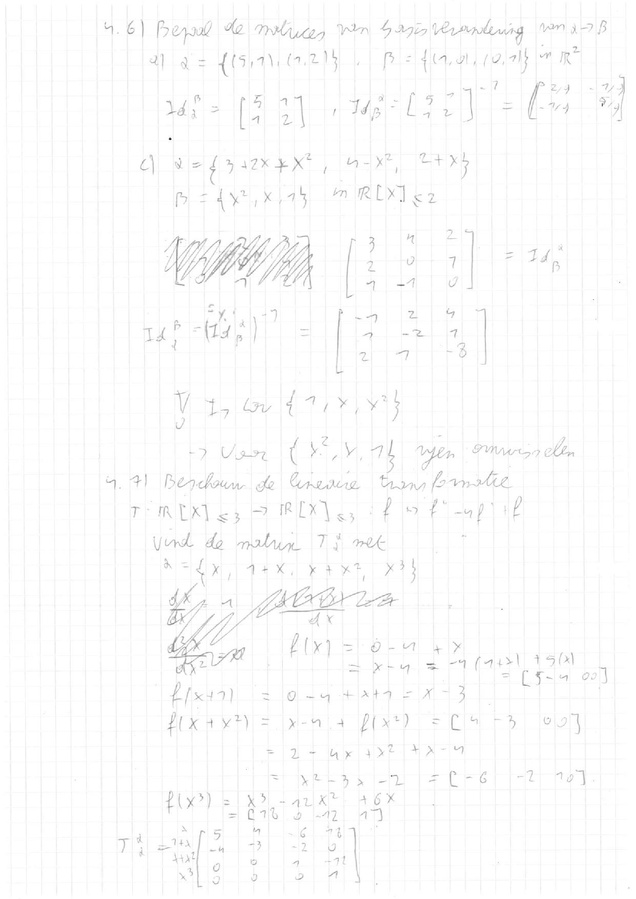 4.6) Bepaal de matrices van basisverandering van α → β
a) α = {(5,1), (1,2)}, β = {(1,0), (0,1)} in ℝ²
Id_α^β = [5 1; 1 2], Id_β^α = [5 1; 1 2]^-1 = [2/9 -1/9; -1/9 5/9]
c) α = {3+2x+x², 4-x², 2+x}
β = {x², x, 1} in ℝ[X]≤2
[3 4 2; 2 0 1; 1 -1 0] = Id_β^α
Id_α^β = (Id_β^α)^-1 = [-1 2 4; 1 -2 1; 2 1 -8]
{1, x, x²}
→ Voor {x², x, 1} rijen omwisselen
4.7) Beschouw de lineaire transformatie
T: ℝ[X]≤3 → ℝ[X]≤3 : f ↦ f'' - 4f' + f
Vind de matrix T_α^α met
α = {x, 1+x, x+x², x³}
f(x) = 0 - 4 + x
= x-4 = -4(1+x) + 5(x)
= [5 -4 0 0]
f(x+1) = 0 - 4 + x+1 = x - 3
f(x+x²) = x-4 + f(x²) = [4 -3 0 0]
= 2 - 4x + x² + x - 4
= x² - 3x - 2 = [-6 -2 1 0]
f(x³) = x³ - 12x² + 6x
= [18 0 -12 1]
T_α^α = x 1+x x+x² x³ [5 4 -6 18; -4 -3 -2 0; 0 0 1 -12; 0 0 0 1]